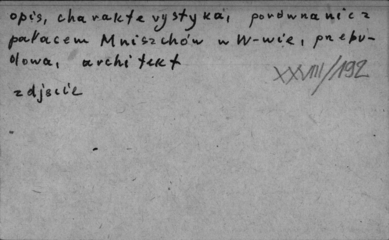 opis, charakterystyka, porównanie z
pałacem Mniszchów w W-wie, przebu-
dowa, architekt
XXVIII/192
zdjęcie